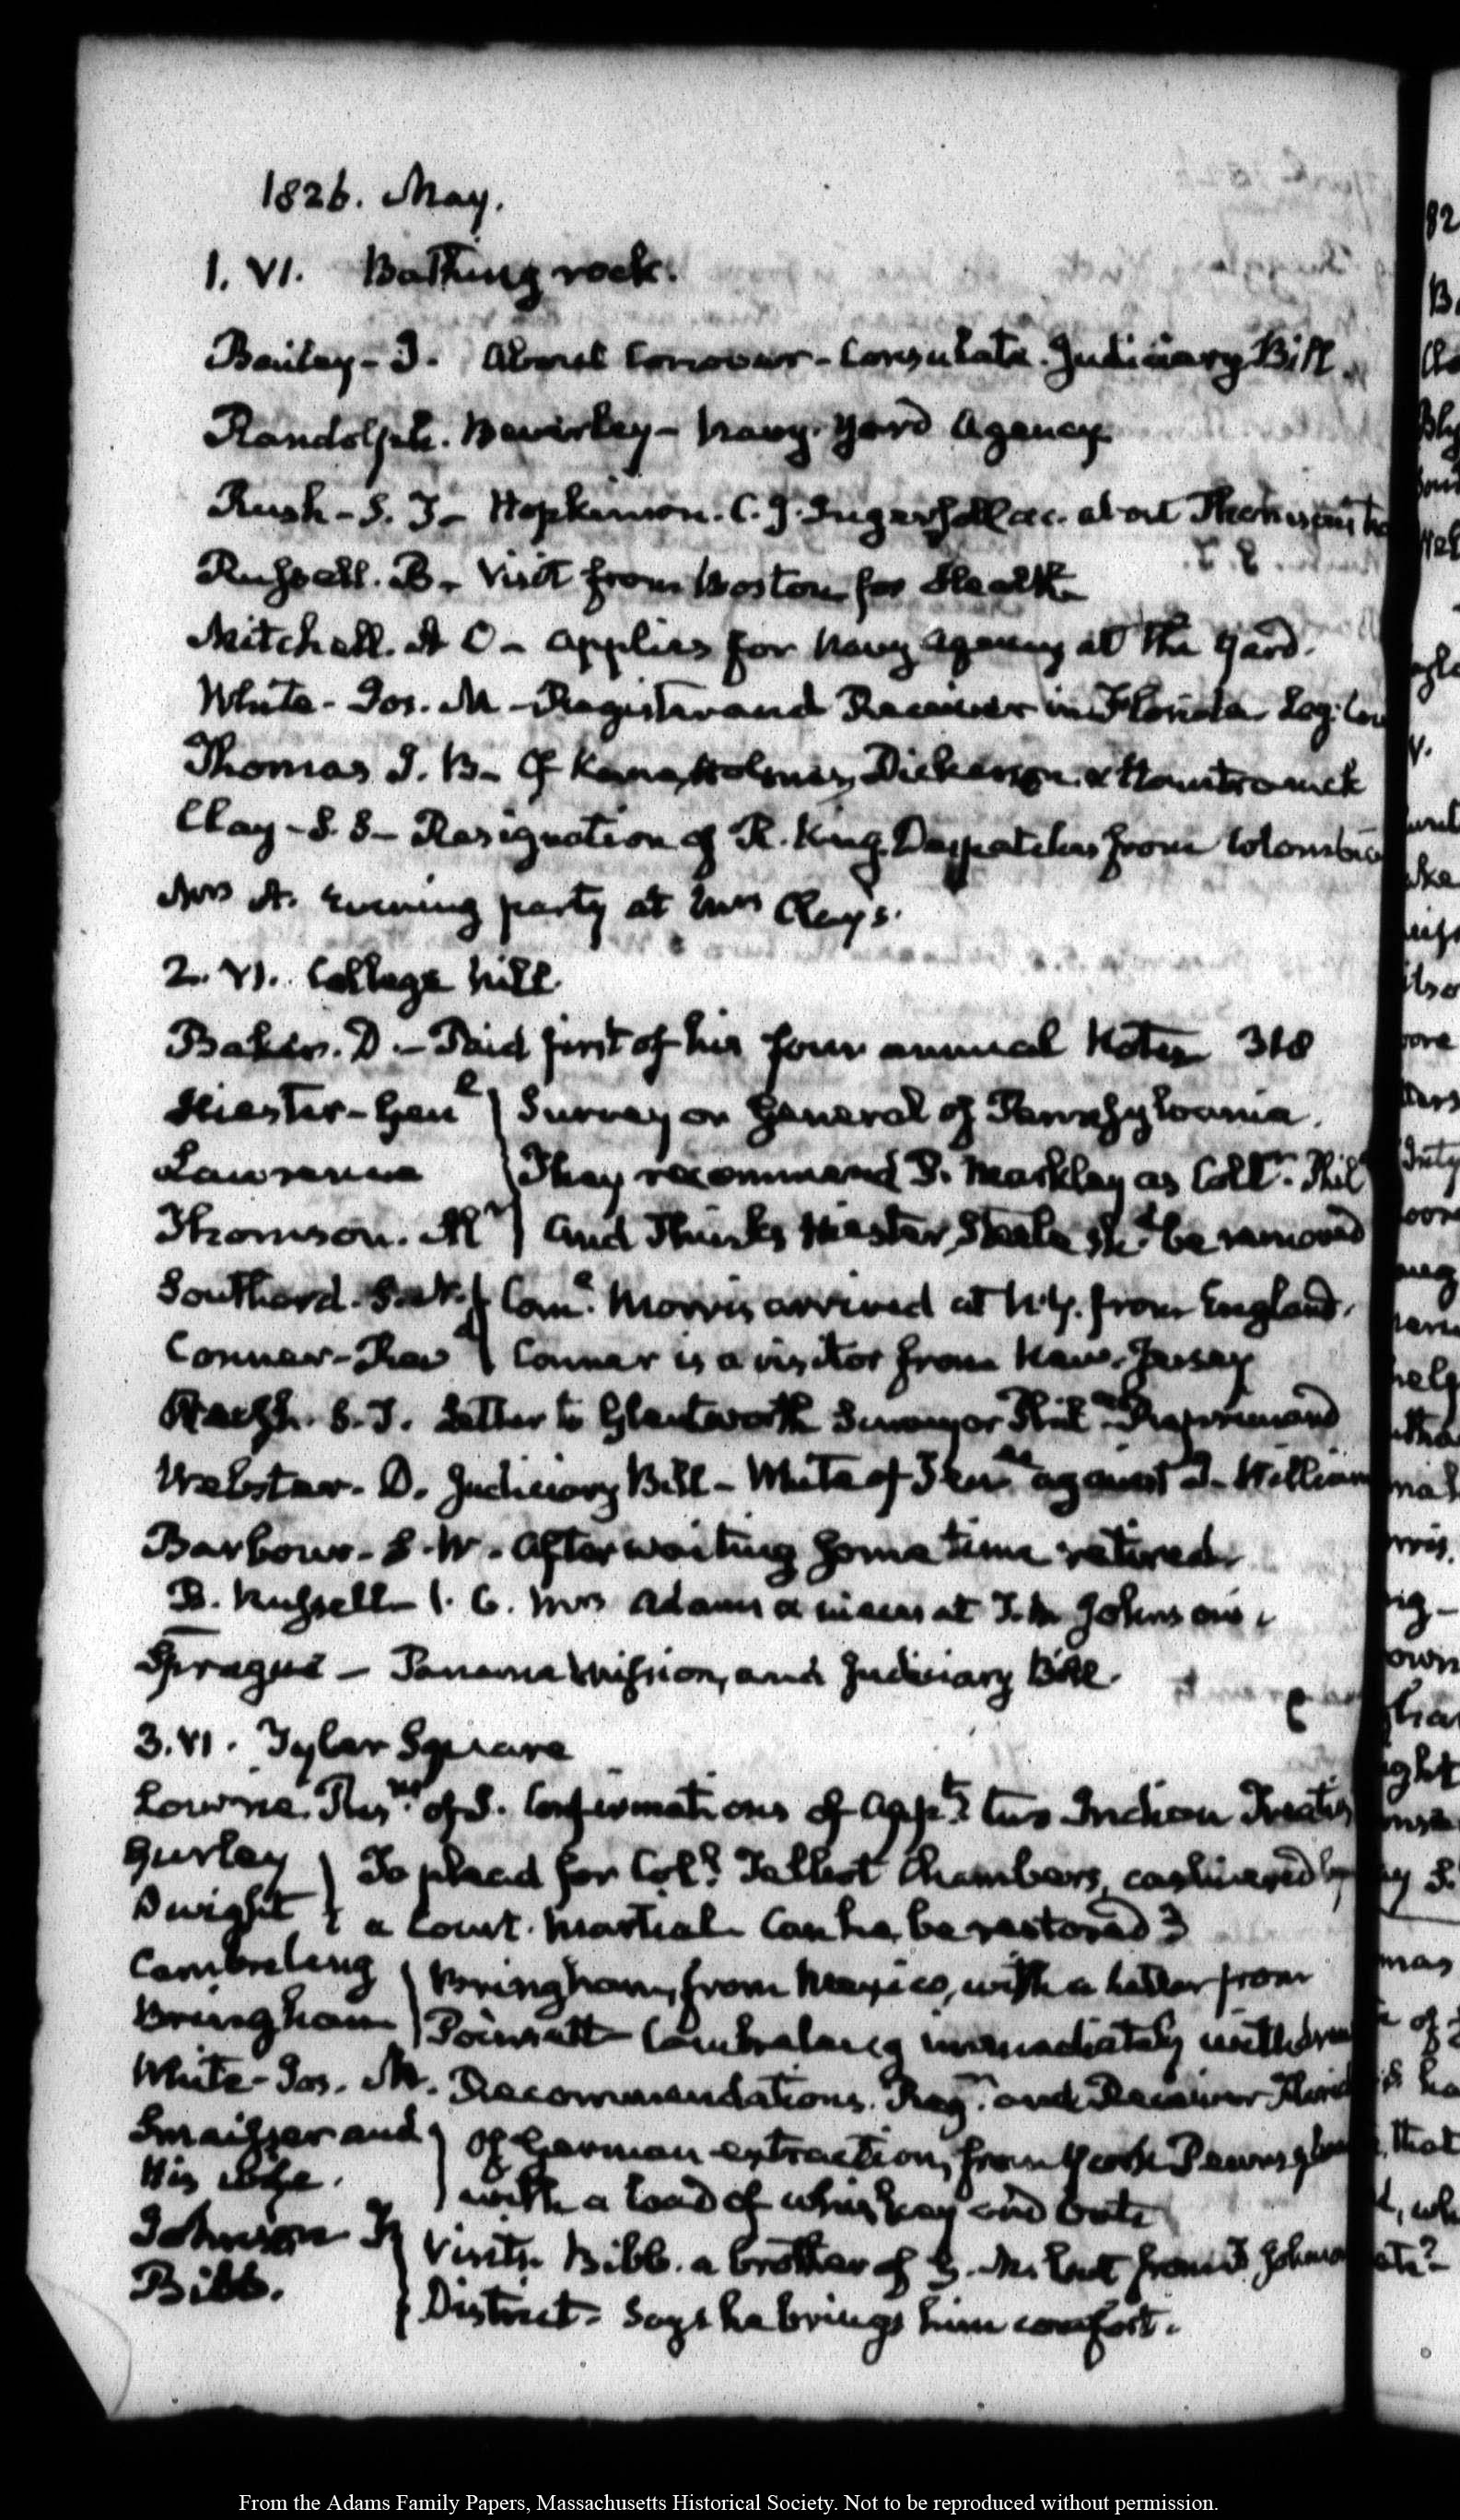 1826. May.
1. VI. Bathing rock.
Bailey - J. About Conover - Consulate. Judiciary Bill.
Randolph. Beverley - Navy-Yard Agency
Rush - S. T. - Hopkinson. C. J. Ingersoll &c. about Thomson
Russell. B. - Visit from Boston for Health
Mitchell. A C - applies for Navy agency at the Yard.
White - Jos. M - Register and Receiver in Florida Leg.
Thomas J. B. - Of Kane, Holmes, Dickerson &
Clay - S. S - Resignation of R. King. Despatches from Colombia
Mrs A. Evening party at Mrs Clay's.
2. VI. College hill.
Baker. D. - Paid first of his four annual Notes 318
Hiester - Genl Surveyor General of Pennsylvania.
Lawrence They recommend P. Markley as Collr. Phil
Thomson. Mr and Thinks Steele shd. be removed
Southard. Come. Morris arrived at N.Y. from England.
Conner - Revd Conner is a visitor from New-Jersey
Rush. S. T. Letter to Glentworth Surveyor Phila.
Webster. D. Judiciary Bill - White of against J. William
Barbour - S. W. After waiting some time retired.
B. Russell Mrs Adams at Johnson's.
Sprague - Panama Mission, and Judiciary Bill.
3. VI. Tyler Square
Lowrie. of S. Confirmations of Appts. two Indian Treaties
Gurley To plead for Coll. Talbot Chambers, cashiered by
Dwight a Court-Martial. Can he be restored?
Cambreleng Bringham, from Mexico, with a letter from
Bringham Poinsett Cambreleng immediately withdrew
White - Jos. M. Recommendations. Regr. and Receiver Florid
Smaisser and of German extraction, from York Pennsylva
his wife. with a load of whiskey and
Johnson F Visits. Bibb. a brother of G. M. but from F Johnson
Bibb. District - Says he brings him comfort.
From the Adams Family Papers, Massachusetts Historical Society. Not to be reproduced without permission.